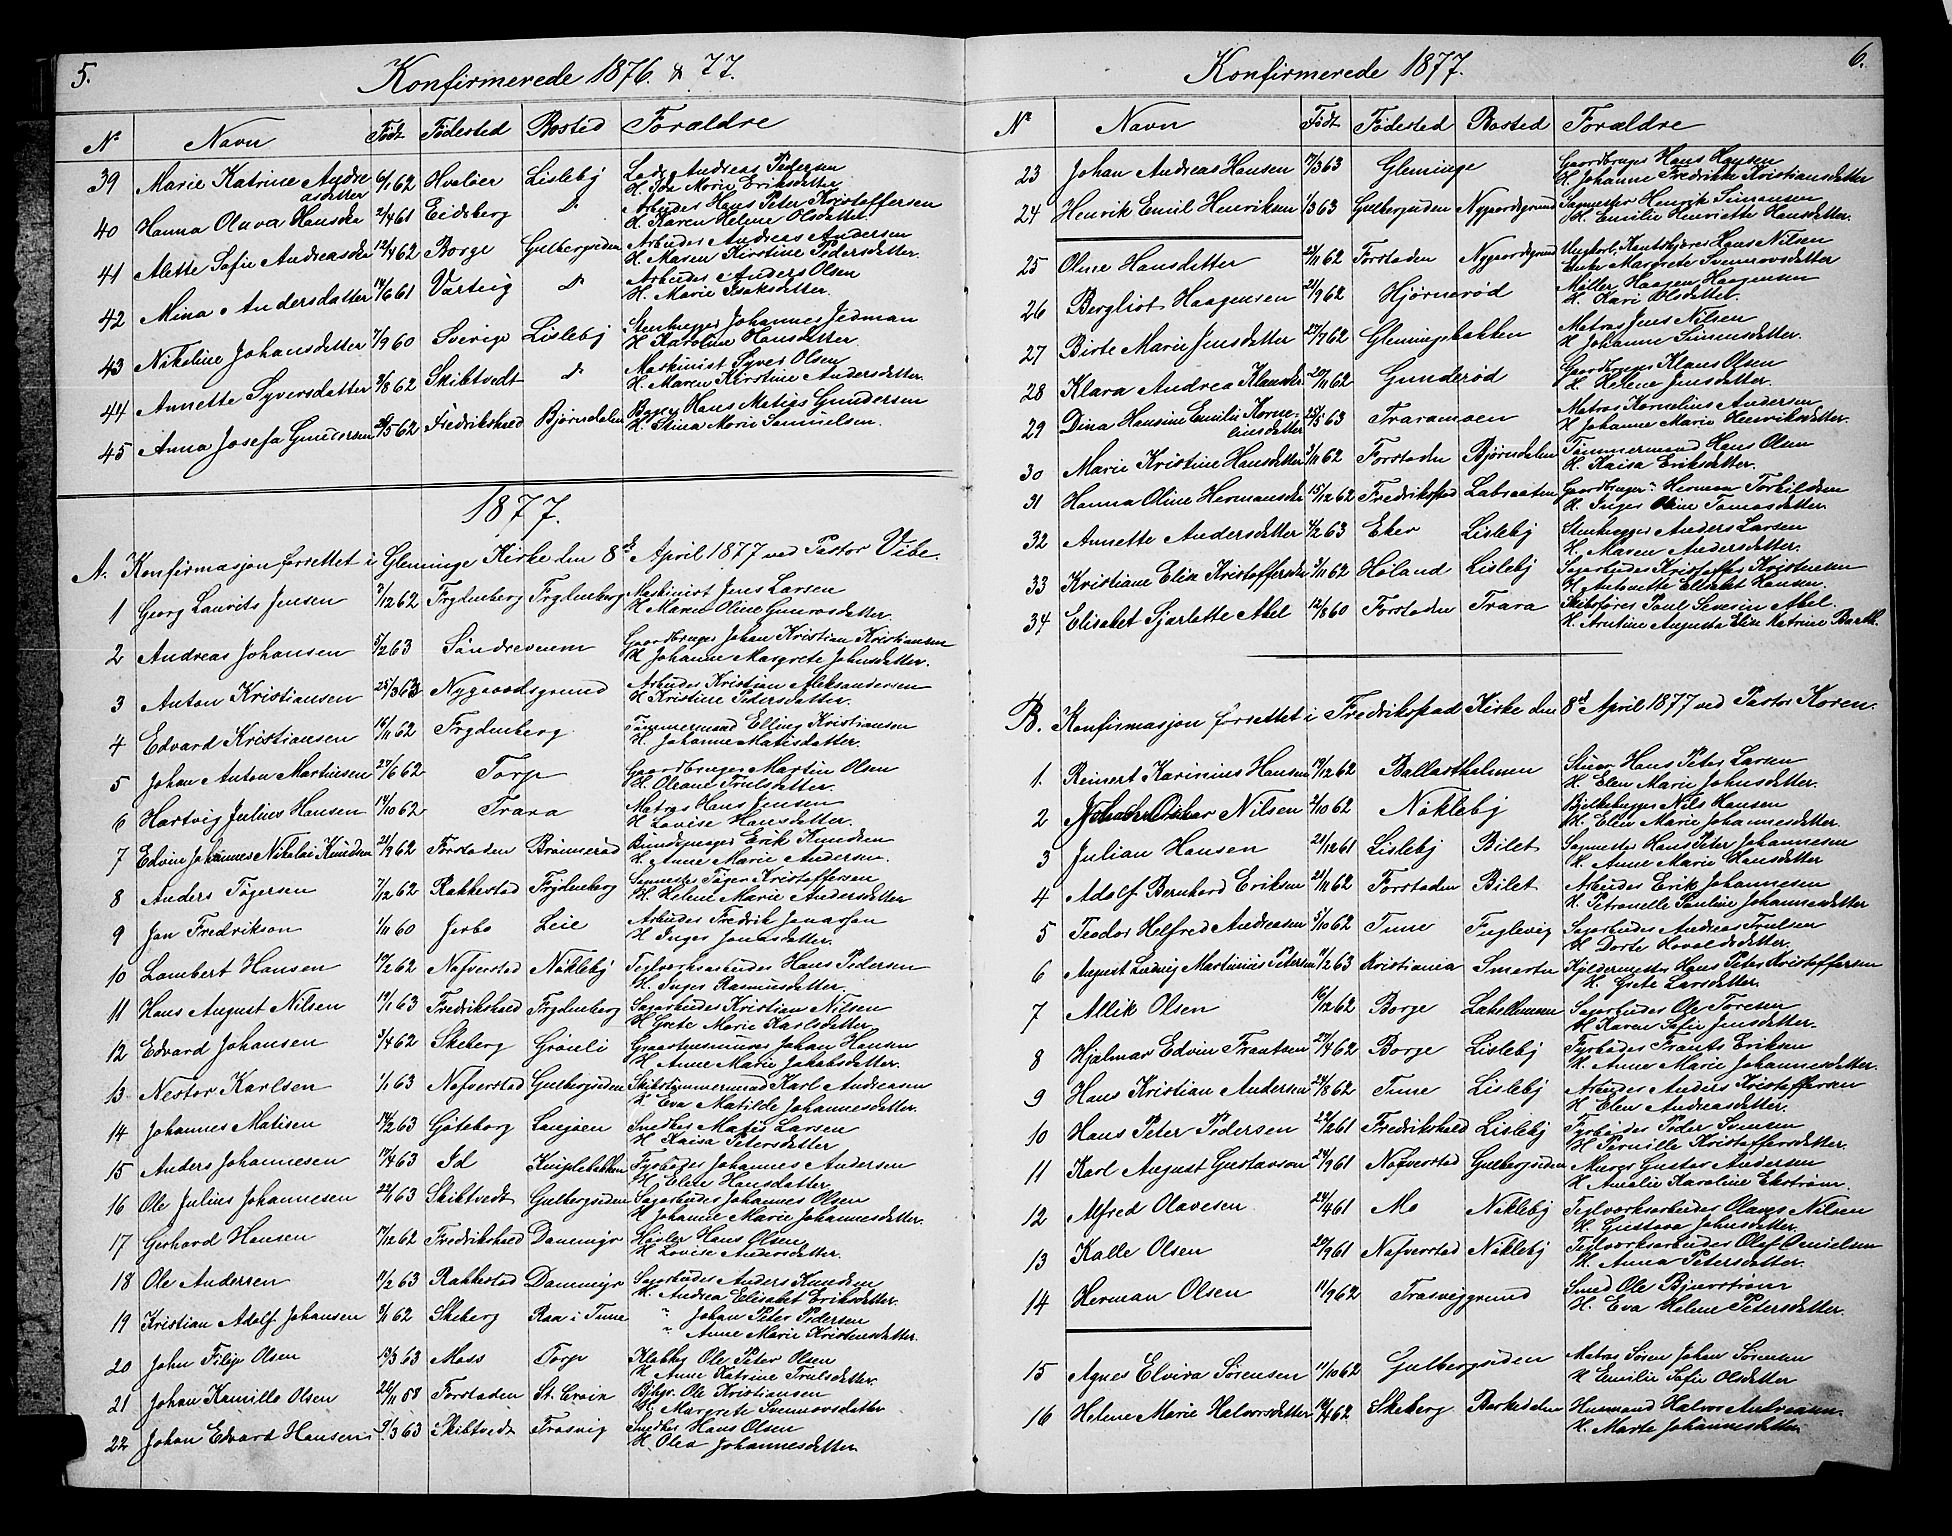 5.
Konfirmerede 1876. & 77.
No Navn Født Fødested Bosted Forældre
39 Marie Katrine Andreasdetter 6/1 62 Hvaløer Lisleby Andreas Pedersen
H. Ida Marie Eriksdetter
40 Hanna Olava Hansda 2/4 61 Eidsberg do Arbeider Hans Peter Kristoffersen
H. Karen Helene Olsdetter
41 Alette Sofie Andreasda 12/4 62 Borge Gulbergsiden Arbeider Andreas Andersen
H. Maren Kirstine Pedersdetter.
42 Mina Andersdatter 14/6 61 Varteig do Arbeider Anders Olsen
H. Marie Isaksdetter.
43 Nikoline Johansdetter 7/9 60 Sverige Lisleby Stenhugger Johannes Jedman
H. Karoline Hansdetter.
44 Annette Syversdatter 9/8 62 Skibtvedt do Maskinist Syver Olsen
H. Maren Kirstine Andersdetter.
45 Anna Josefa Gundersen 5 62 Fredrikshald Bjørndalen Hans Matias Gundersen
H. Stina Marie Samuelsen.
1877.
A. Konfirmasjon forrettet i Glemminge Kirke den 8de April 1877 ved Pastor Vibe.
1 Georg Laurits Jensen 3/12 62 Frydenberg Frydenberg Maskinist Jens Larsen
H. Maren Oline Gunrosdetter
2 Andreas Johansen 5/2 63 Søndreveum Gaardbruger Johan Kristian Kristiansen
H. Johanne Margrete Johnsdetter.
3 Anton Kristiansen 25/3 63 Nygaardsgrund Arbeider Kristian Aleksandersen
H. Kristine Pedersdetter.
4 Edvard Kristiansen 16/11 62 Frydenberg. Tømmermand Elling Kristiansen
H. Johanne Matisdatter.
5 Johan Anton Martinsen 27/6 62 Torp Gaardbruger Martin Olsen
H. Oleane Trulsdetter.
6 Hartvig Julius Hansen 14/10 62 Trara Matros Hans Jensen
H. Lovise Hansdetter.
7 Edvin Johannes Nikolai Knudsen 21/9 62 Forstaden Brønnerød Erik Knudsen
H. Anne Marie Andersen.
8 Anders Tøgersen 7/2 62 Rakkestad Frydenberg Sagmester Tøger Kristoffersen
H. Helene Marie Andersdetter
9 Jon Fredrikson 1/11 60 Jerbo Leie Arbeider Fredrik Jonasson
H. Inger Jonasdetter.
10 Lambert Hansen 19/2 62 Nafverstad Nøkleby Teglværksarbeider Hans Pedersen
H. Inger Rasmusdetter.
11 Hans August Nilsen 19/1 63 Fredrikshald Frydenberg Sagarbeider Kristian Nilsen
H. Grete Marie Karlsdetter
12 Edvard Johansen 3/4 62 Skeberg Grønli Graastensmurer Johan Hansen
H. Anne Marie Jakobsdetter
13 Nestor Karlsen 1/1 63 Nafverstad Gulbergsiden Skibstømmermand Karl Andreasen
H. Eva Matilde Johannesdetter.
14 Johannes Matisen 14/2 63 Gøteborg Snedker Matis Larsen
H. Kaisa Petersdetter
15 Anders Johannesen 17/4 63 Id Kniplebakken Fyrbøder Johannes Andersen
H. Elen Hansdatter
16 Ole Julius Johannesen 22/1 63 Skibtvedt Gulbergsiden Sagarbeider Johannes Olsen
H. Johanne Marie Johannesdetter.
17 Gerhard Hansen 17/12 62 Fredrikshald Dammyr Høvler Hans Olsen
H. Lovise Andersdetter.
18 Ole Andersen 17/2 63 Rakkestad Dammyr Sagarbeider Anders Knudsen
H. Andrea Elisabet Eriksdetter.
19 Kristian Adolf Johansen 9/1 62 Skeberg Raa i Tune " Johan Peter Pedersen
" Anne Marie Kristensdetter.
20 John Filip Olsen 19/3 63 Moss Torp Ole Peter Olsen
H. Anne Katrine Trulsdetter.
21 Johan Kamillo Olsen 26/11 58 Forstaden St. Croix Ole Kristiansen
H. Margrete Svennovsdatter
22 Johan Edvard Hansen 9/3 63 Skibtvedt Trosvig Snedker Hans Olsen
H. Olea Johannesdetter
6.
Konfirmerede 1877.
No Navn Født Fødested Bosted Forældre
23 Johan Andreas Hansen 17/3 63 Gleminge Gaardbruger Hans Hansen
H. Johanne Fredrikke Kristiansdetter
24 Henrik Emil Henriksen 1/3 63 Gulbergsiden Nygaardsgrund Sagmester Henrik Simonsen
H. Emilie Henriette Hansdetter.
25 Oline Hansdetter 22/11 62 Forstaden Nygaardsgrund Ungkarl, Hans Nilsen
Enke Margrete Svennovsdetter
26 Bergliot Haagensen 21/9 62 Hjørnerød Møller Haagen Haagensen
H. Kari Olsdetter.
27 Birte Marie Jensdetter 27/7 62 Glemingebakken Matros Jens Nilsen
H. Johanne Simensdetter.
28 Klara Andrea Klausda 20/11 62 Gunderød Gaardbruger Klaus Olsen
H. Helene Jensdetter.
29 Dina Hansine Emilie Korneliusdetter 25/1 63 Traramoen Matros Kornelius Andersen
H. Johanne Marie Henriksdetter.
30 Marie Kristine Hansdetter 3/11 62 Forstaden Bjørndalen Tømmermand Hans Olsen
H. Kaisa Eriksdetter.
31 Hanna Oline Hermansda 15/12 62 Fredrikstad Labraaten Gaardbruger Herman Torkildsen
H. Inger Oline Tomasdetter.
32 Annette Andersdetter 4/2 63 Eker Lisleby Stenhugger Anders Larsen
H. Maren Andersdetter.
33 Kristiane Elise Kristoffersda 3/11 62 Høland Lisleby Sagarbeider Kristoffer Kristensen
H. Antonette Elisabet Hansen.
34 Elisabet Sjarlotte Abel 12/8 60 Forstaden Trara Skibsfører Paul Severin Abel.
H. Arntine Augusta Elise Katrine Barth.
B. Konfirmasjon forrettet i Fredrikstad Kirke den 8de April 1877 ved Pastor Koren.
1. Reinert Karinius Hansen 19/12 62 Ballastholmen Stuer Hans Peter Larsen
H. Elen Marie Johnsdetter.
2 Johan Oskar Nilsen 2/10 62 Nøkleby Bjelkehugger Nils Hansen
H. Elen Marie Johannesdetter.
3 Julian Hansen 21/12 61 Lisleby Bilet Sagmester Hans Peter Johannesen
H. Anne Marie Hansdetter
4 Adolf Bernhard Eriksen 21/11 62 Forstaden Bilet Arbeider Erik Johannesen
H. Petronelle Pauline Johannesdetter
5 Teodor Helfred Andreasen 5/10 62 Tune Fuglevig Sagarbeider Andreas Trulsen
H. Dorte Hovaldsdetter.
6 August Ludvig Martinius Petersen 11/2 63 Kristiania Smertu Hjeldermester Hans Peter Kristoffersen
H. Grete Larsdetter.
7 Allik Olsen 16/12 62 Borge Lahellemoen Sagarbeider Ole Toresen
H. Karen Sofie Jensdetter.
8 Hjalmar Edvin Frantsen 27/4 62 Borge Lisleby Fyrbøder Frants Eriksen
H. Anne Marie Johannesdetter.
9 Hans Kristian Andersen 24/8 62 Tune Lisleby Arbeider Anders Kristoffersen
H. Elen Andreasdetter.
10 Hans Peter Pedersen 22/2 61 Fredrikshald Lisleby Fyrbøder Peder Simensen
H. Pernille Kristoffersdetter.
11 Karl August Gustavson 24/9 61 Nafverstad Gulbergsiden Murer Gustav Andersen
H. Amalie Karoline Ekstrøm.
12 Alfred Olavesen 24/4 61 Mo Nøkleby Teglværksarbeider Olaves Nilsen
H. Gustava Johnsdetter.
13 Kalle Olsen 20/9 61 Nafverstad Nøkleby Teglværksarbeider Olof Danielsen
H. Anna Petersdetter.
14 Herman Olsen 11/9 62 Trosviggrund Smed Ole Bjurstrøm
H. Eva Helene Petersdetter.
15 Agnes Elvira Sørensen 11/10 62 Gulbergsiden Matros Søren Johan Sørensen
H. Emilie Sofie Olsdetter
16 Helene Marie Halvorsdetter 19/4 62 Skeberg Borkedalen Husmand Halvor Andreassen.
H. Marte Johannesdetter